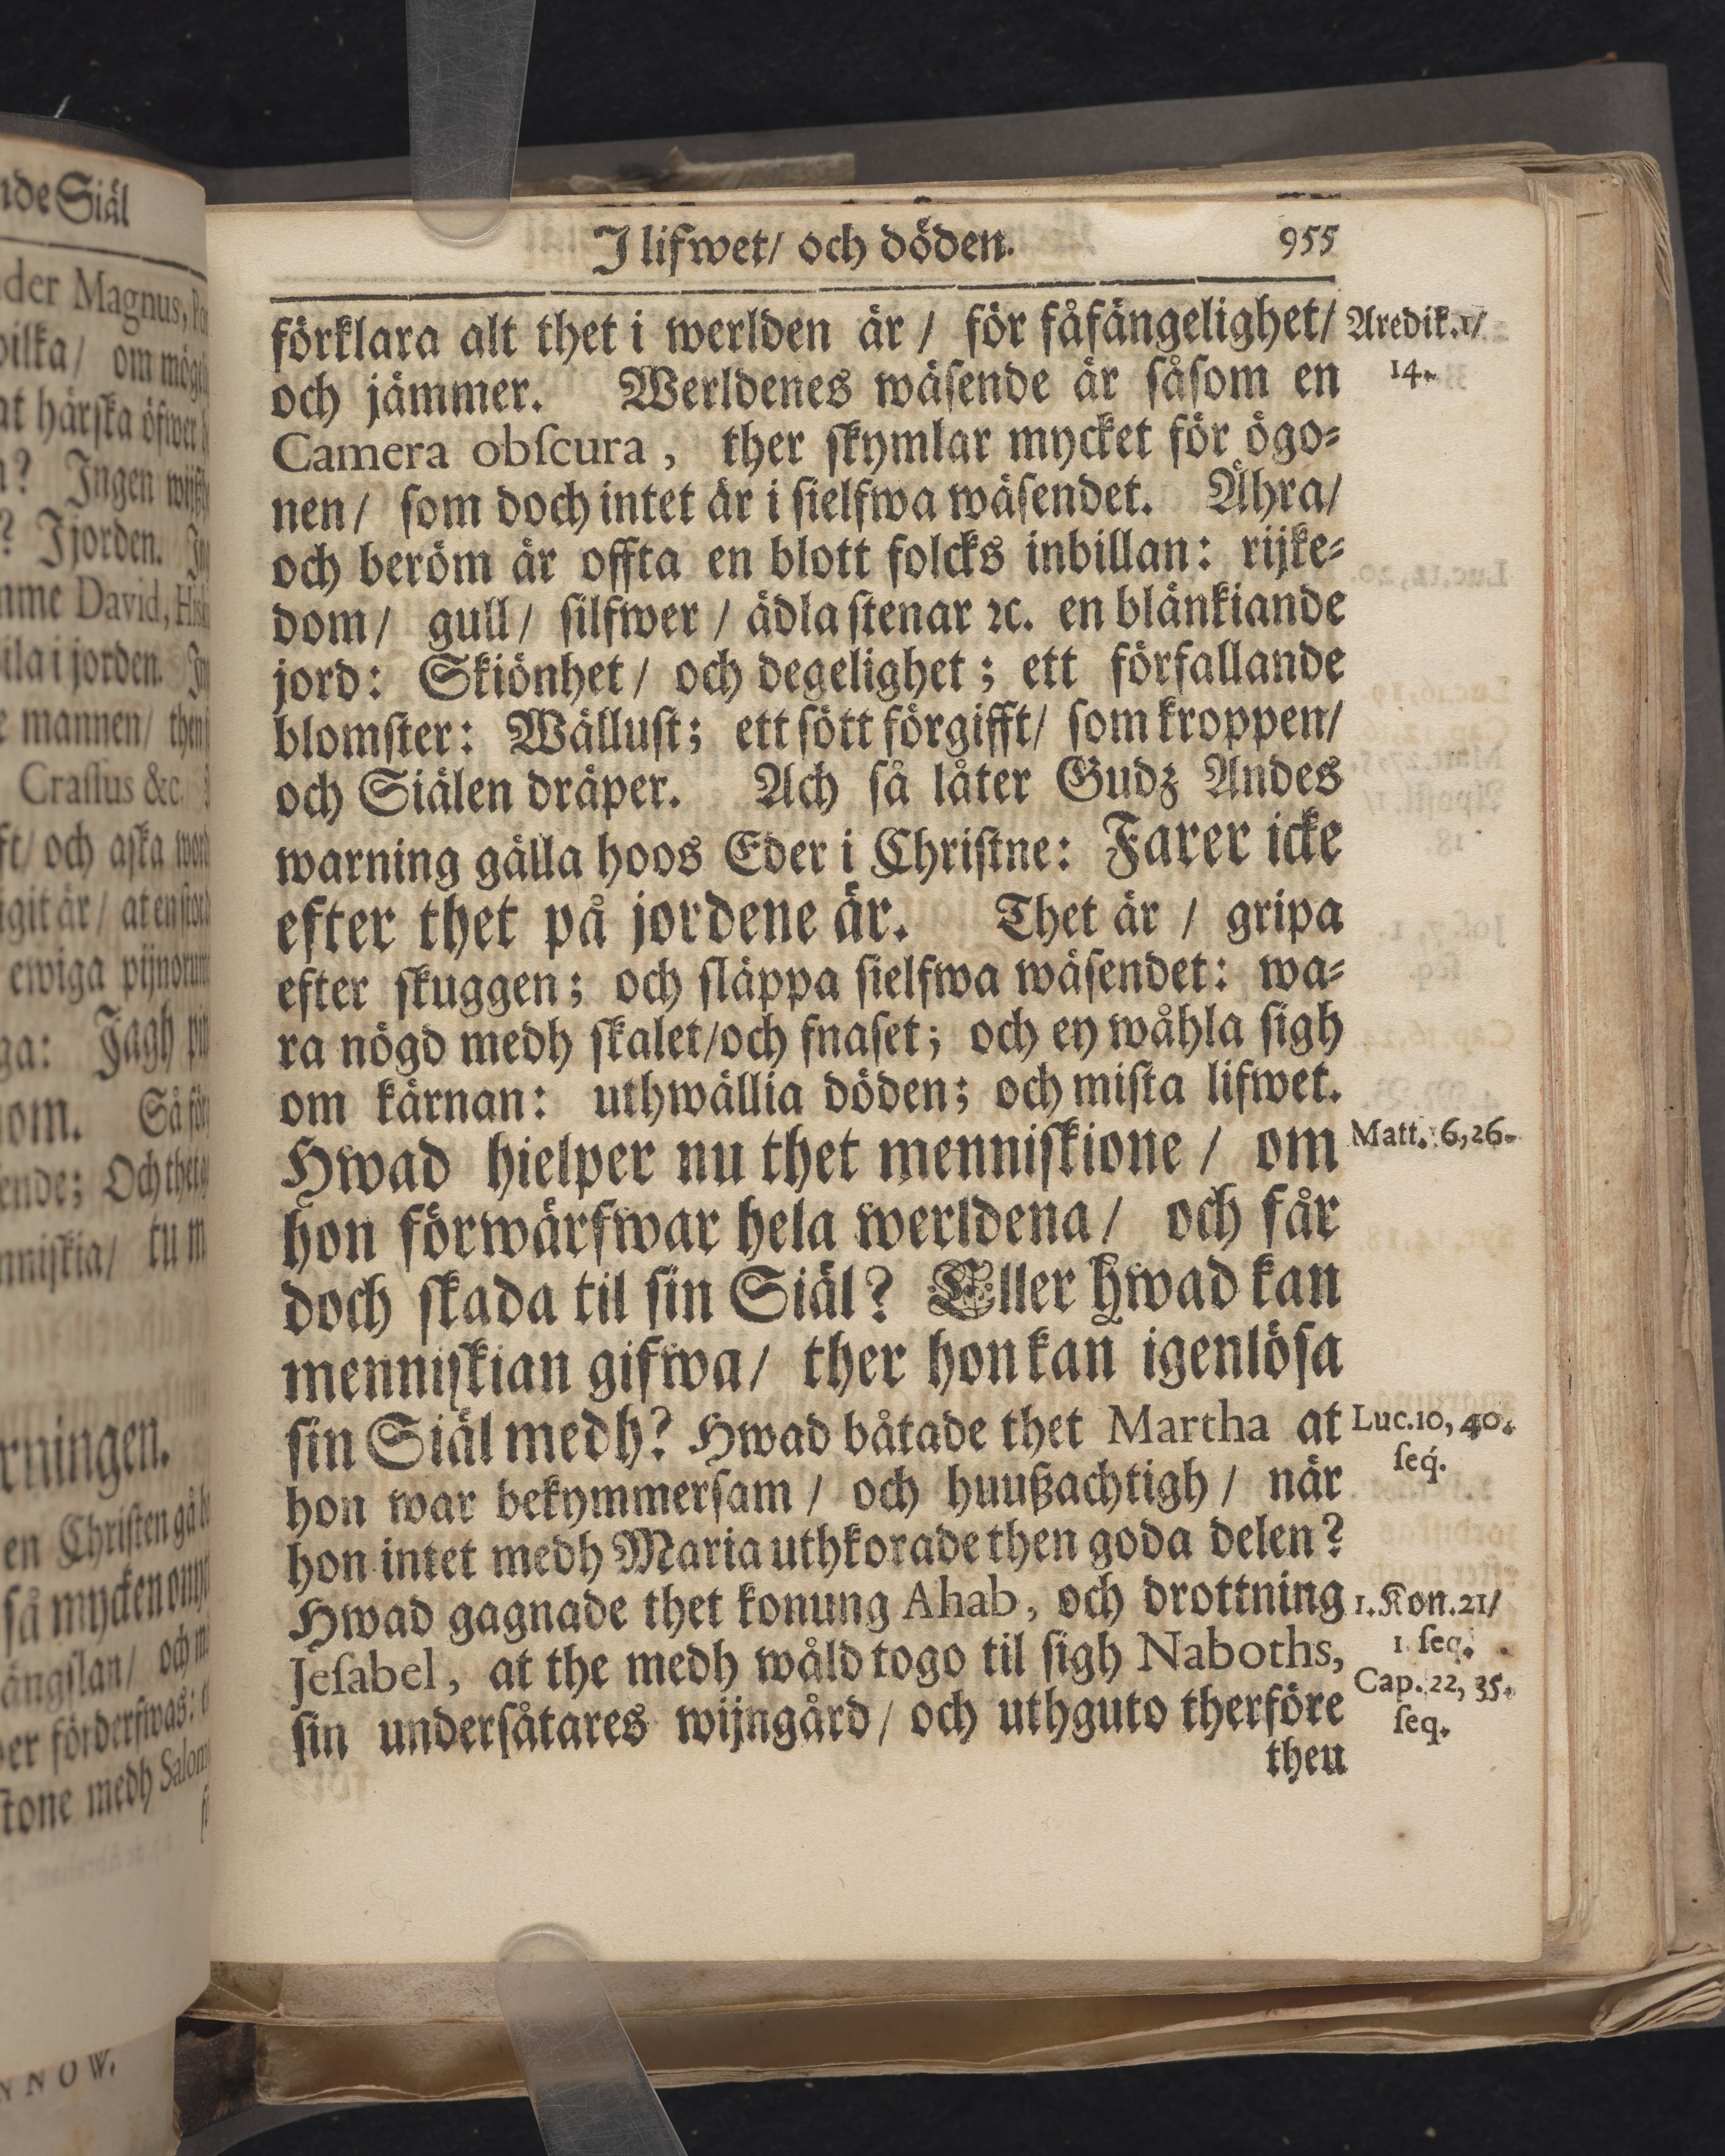 nde Siäl
der Magnus,
om
at härska öfwer
? Ingen
? I jorden.
mme David,
ila i jorden.
mannen/
Crassus &c.
och aska
ewiga
Jagh
om. Så
Och
tu
rningen.
en Christen gå
så mycken
ängslan/ och
förderfwas:
medh
I lifwet/ och döden. 955
förklara alt thet i werlden är / för fåfängelighet/ Predik.1/
och jämmer. Werldenes wäsende är såsom en 14.
Camera obscura, ther skymlar mycket för ögo⸗
nen/ som doch intet är i sielfwa wäsendet. Ähra/
och beröm är offta en blott folcks inbillan: rijke⸗
dom/ gull/ silfwer / ädla stenar ꝛc. en blänkiande
jord: Skiönhet/ och degelighet; ett förfallande
blomster: Wällust; ett sött förgifft/ som kroppen/
och Siälen dräper. Ach så låter Gudz Andes
warning gälla hoos Eder i Christne: Farer icke
efter thet på jordene är. Thet är / gripa
efter skuggen; och släppa sielfwa wäsendet: wa⸗
ra nögd medh skalet/och fnaset; och ey wåhla sigh
om kärnan: uthwällia döden; och mista lifwet.
Hwad hielper nu thet menniskione / om Matt. 6,26.
hon förwärfwar hela werldena/ och får
doch skada til sin Siäl? Eller hwad kan
menniskian gifwa/ ther hon kan igenlösa
sin Siäl medh? Hwad båtade thet Martha at Luc.10, 40.
hon war bekymmersam / och huußachtigh / när seq́.
hon intet medh Maria uthkorade then goda delen?
Hwad gagnade thet konung Ahab, och drottning 1.Kon.21/
Jesabel, at the medh wåld togo til sigh Naboths, 1 seq.
sin undersåtares wijngård/ och uthguto therföre Cap.22, 35.
seq.
theu
NNOW.